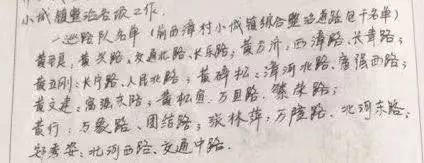 小城镇整治各项工作.
一. 巡路队名单(前西漳村小城镇综合整治道路包干名单)
黄甲良: 黄兴路, 交通北路, 长乐路; 黄方介: 西漳路、长青路;
黄立刚: 长庁路、人民北路; 黄碎松: 漳河北路、富强西路;
黄文建: 富强东路; 黄松 . 万且路. 繁荣路;
黄行: 万象路、团结路; 张林萍: 万隆路. 北河东路;
郑秀 : 北河西路、交通中路.